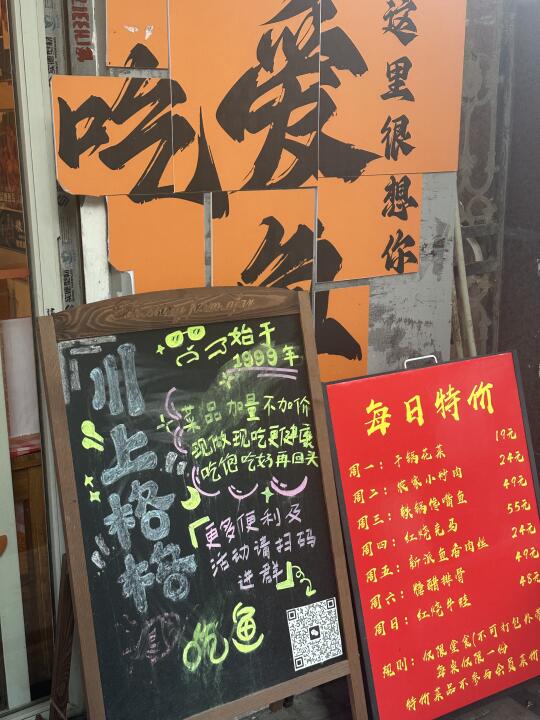 爱
吃
鱼
这里很想你
川上格格
始于
1999年
菜品加量不加价
现做现吃更健康
吃饱吃好再回头
更多便利及
活动请扫码
进群
吃鱼
每日特价
周一：干锅花菜 19元
周二：农家小炒肉 24元
周三：铁锅馋嘴鱼 49元
周四：红烧 55元
周五：新派鱼香肉丝 24元
周六：糖醋排骨 49元
周日：红烧牛 48元
规则：仅限堂食（不可打包外带
每桌仅限一份
特价菜品不参与会员菜价